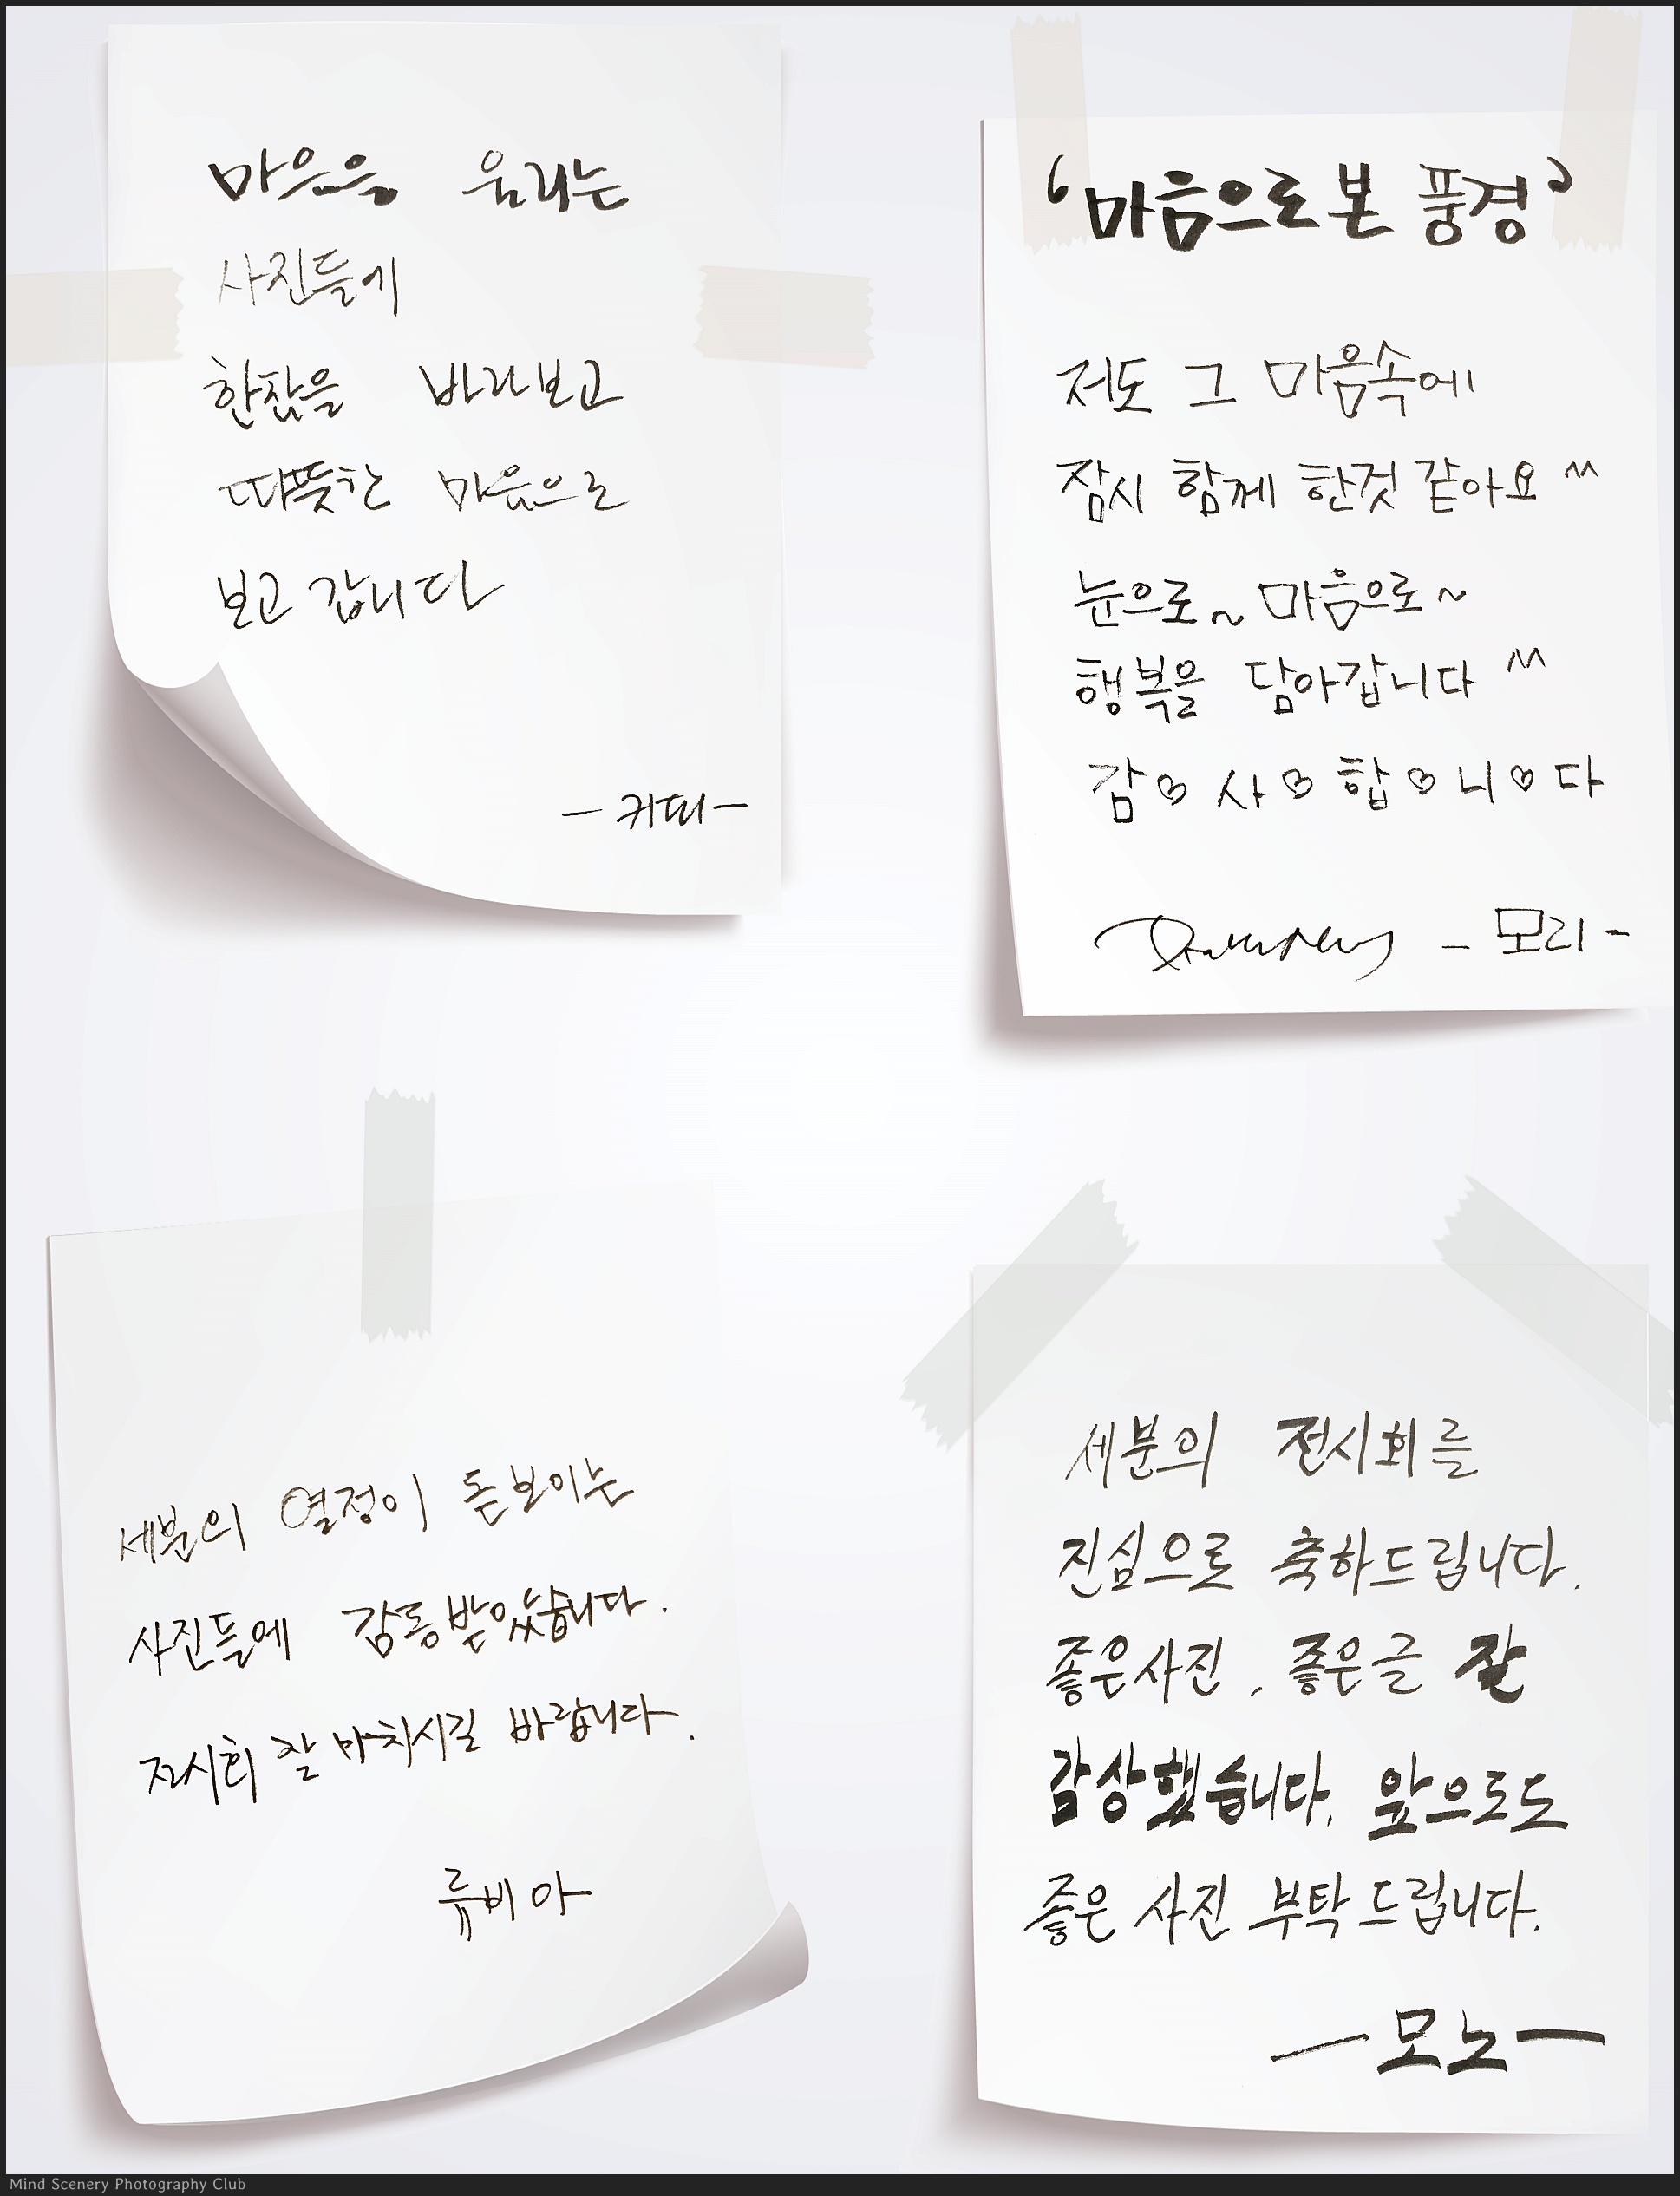 마음을 움리는
사진들에
한참을 바라보고
따뜻한 마음으로
보고 갑니다
- 커띠 -
'마음으로 본 풍경'
저도 그 마음속에
잠시 함께 한것 같아요 ^^
눈으로~ 마음으로~
행복을 담아갑니다 ^^
감♡사♡합♡니♡다
- 모리 -
세분의 열정이 돋보이는
사진들에 감동받았습니다.
전시회 잘 마치시길 바랍니다.
류비아
세분의 전시회를
진심으로 축하드립니다.
좋은사진, 좋은글 잘
감상했습니다. 앞으로도
좋은 사진 부탁드립니다.
- 모노 -
Mind Scenery Photography Club